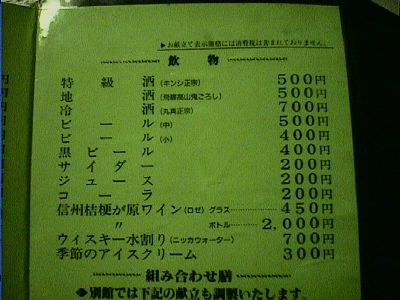 ▶お献立て表示価格には消費税は含まれておりません。
飲物
特級酒(キンシ正宗) 500円
地酒(飛騨高山鬼ごろし) 500円
冷酒(丸真正宗) 700円
ビール(中) 500円
ビール(小) 400円
黒ビール 400円
サイダー 200円
ジュース 200円
コーラ 200円
信州桔梗が原ワイン(ロゼ) グラス 450円
〃 ボトル 2,000円
ウィスキー水割り(ニッカウォーター) 700円
季節のアイスクリーム 300円
組み合わせ膳
◆別館では下記の献立も調製いたします。